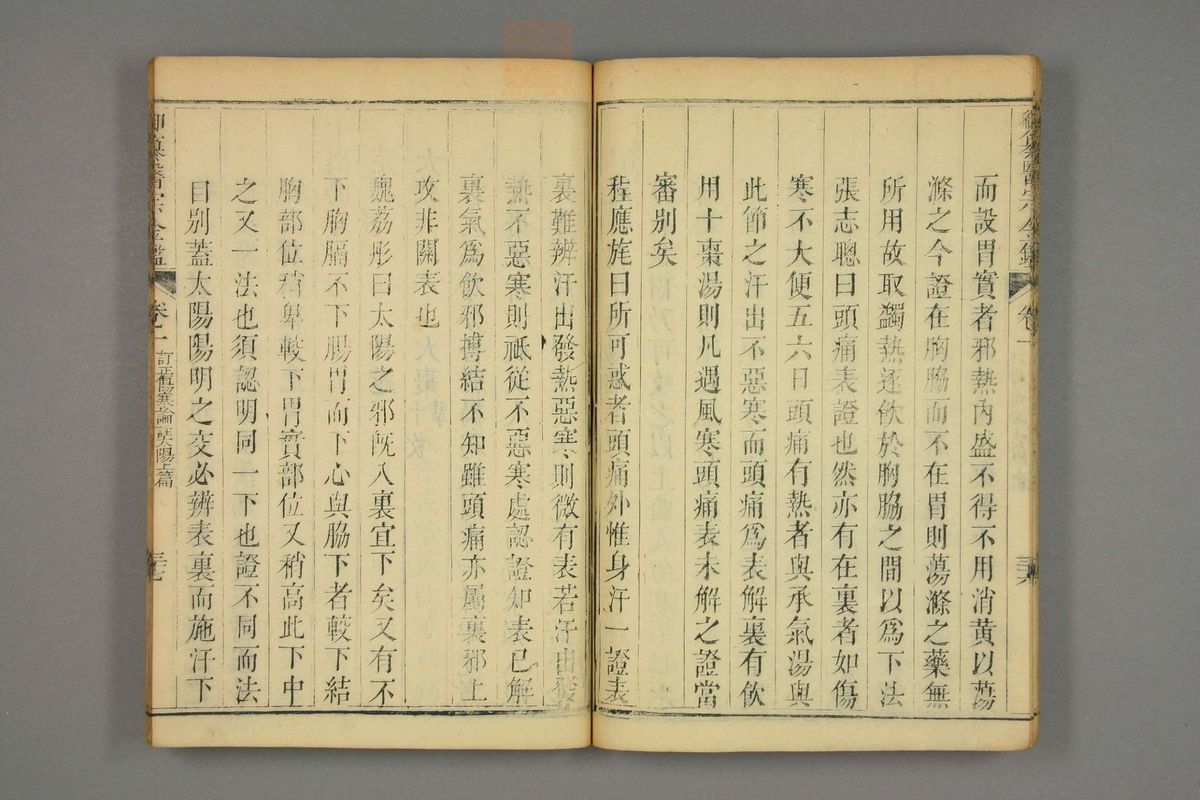 而設胃實者邪熱內盛不得不用消黃以蕩
滌之今證在胸脇而不在胃則蕩滌之藥無
所用故取蠲熱逐飲於胸脇之間以為下法
張志聰曰頭痛表證也然亦有在裏者如傷
寒不大便五六日頭痛有熱者與承氣湯與
此節之汗出不惡寒而頭痛為表解裏有飲
用十棗湯則凡遇風寒頭痛表未解之證當
審別矣
程應旄曰所可惑者頭痛外惟身汗一證表
裏難辨汗出發熱惡寒則微有表若汗出發
熱不惡寒則祇從不惡寒處認證知表已解
裏氣為飲邪搏結不知雖頭痛亦屬裏邪上
攻非關表也
魏荔彤曰太陽之邪既入裏宜下矣又有不
下胸膈不下腸胃而下心與脇下者較下結
胸部位稍卑較下胃實部位又稍高此下中
之又一法也須認明同一下也證不同而法
自別蓋太陽陽明之交必辨表裏而施汗下
御纂醫宗金鑑 卷一 訂正傷寒論註太陽上篇 三七